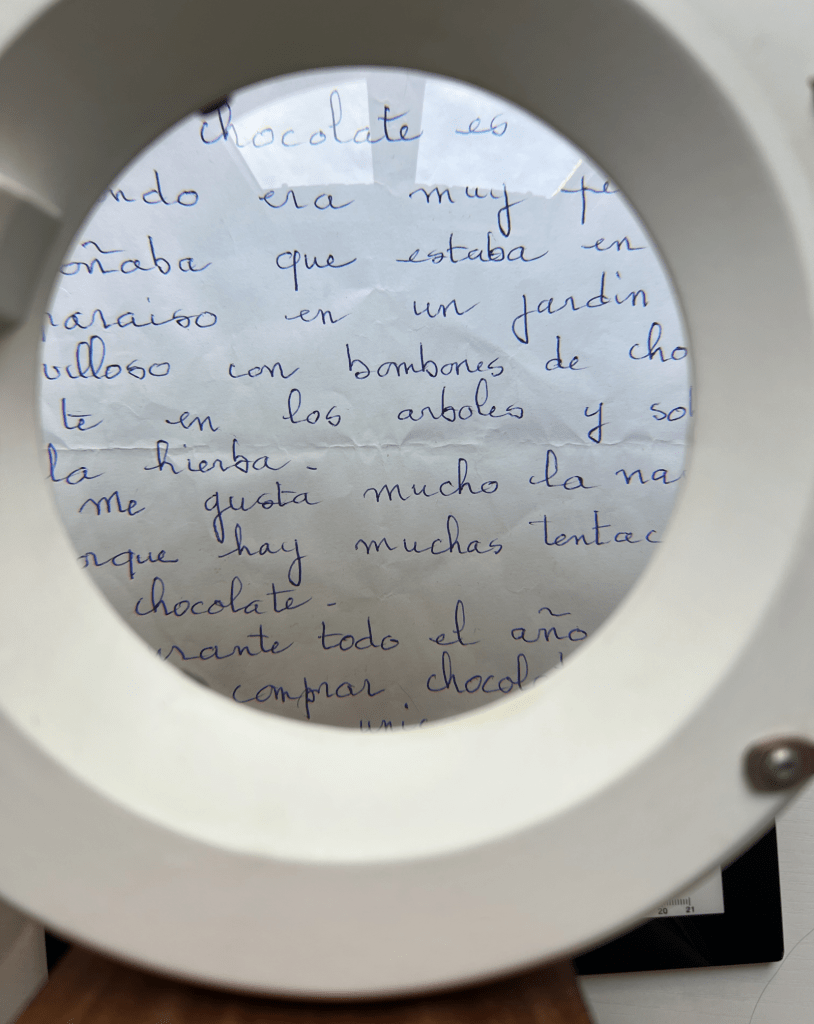 chocolate es
ndo era muy pe
oñaba que estaba en
paraiso en un jardin
villoso con bombones de cho
te en los arboles y sob
la hierba.
me gusta mucho la na
rque hay muchas tentac
chocolate.
urante todo el año
comprar chocola
20 21